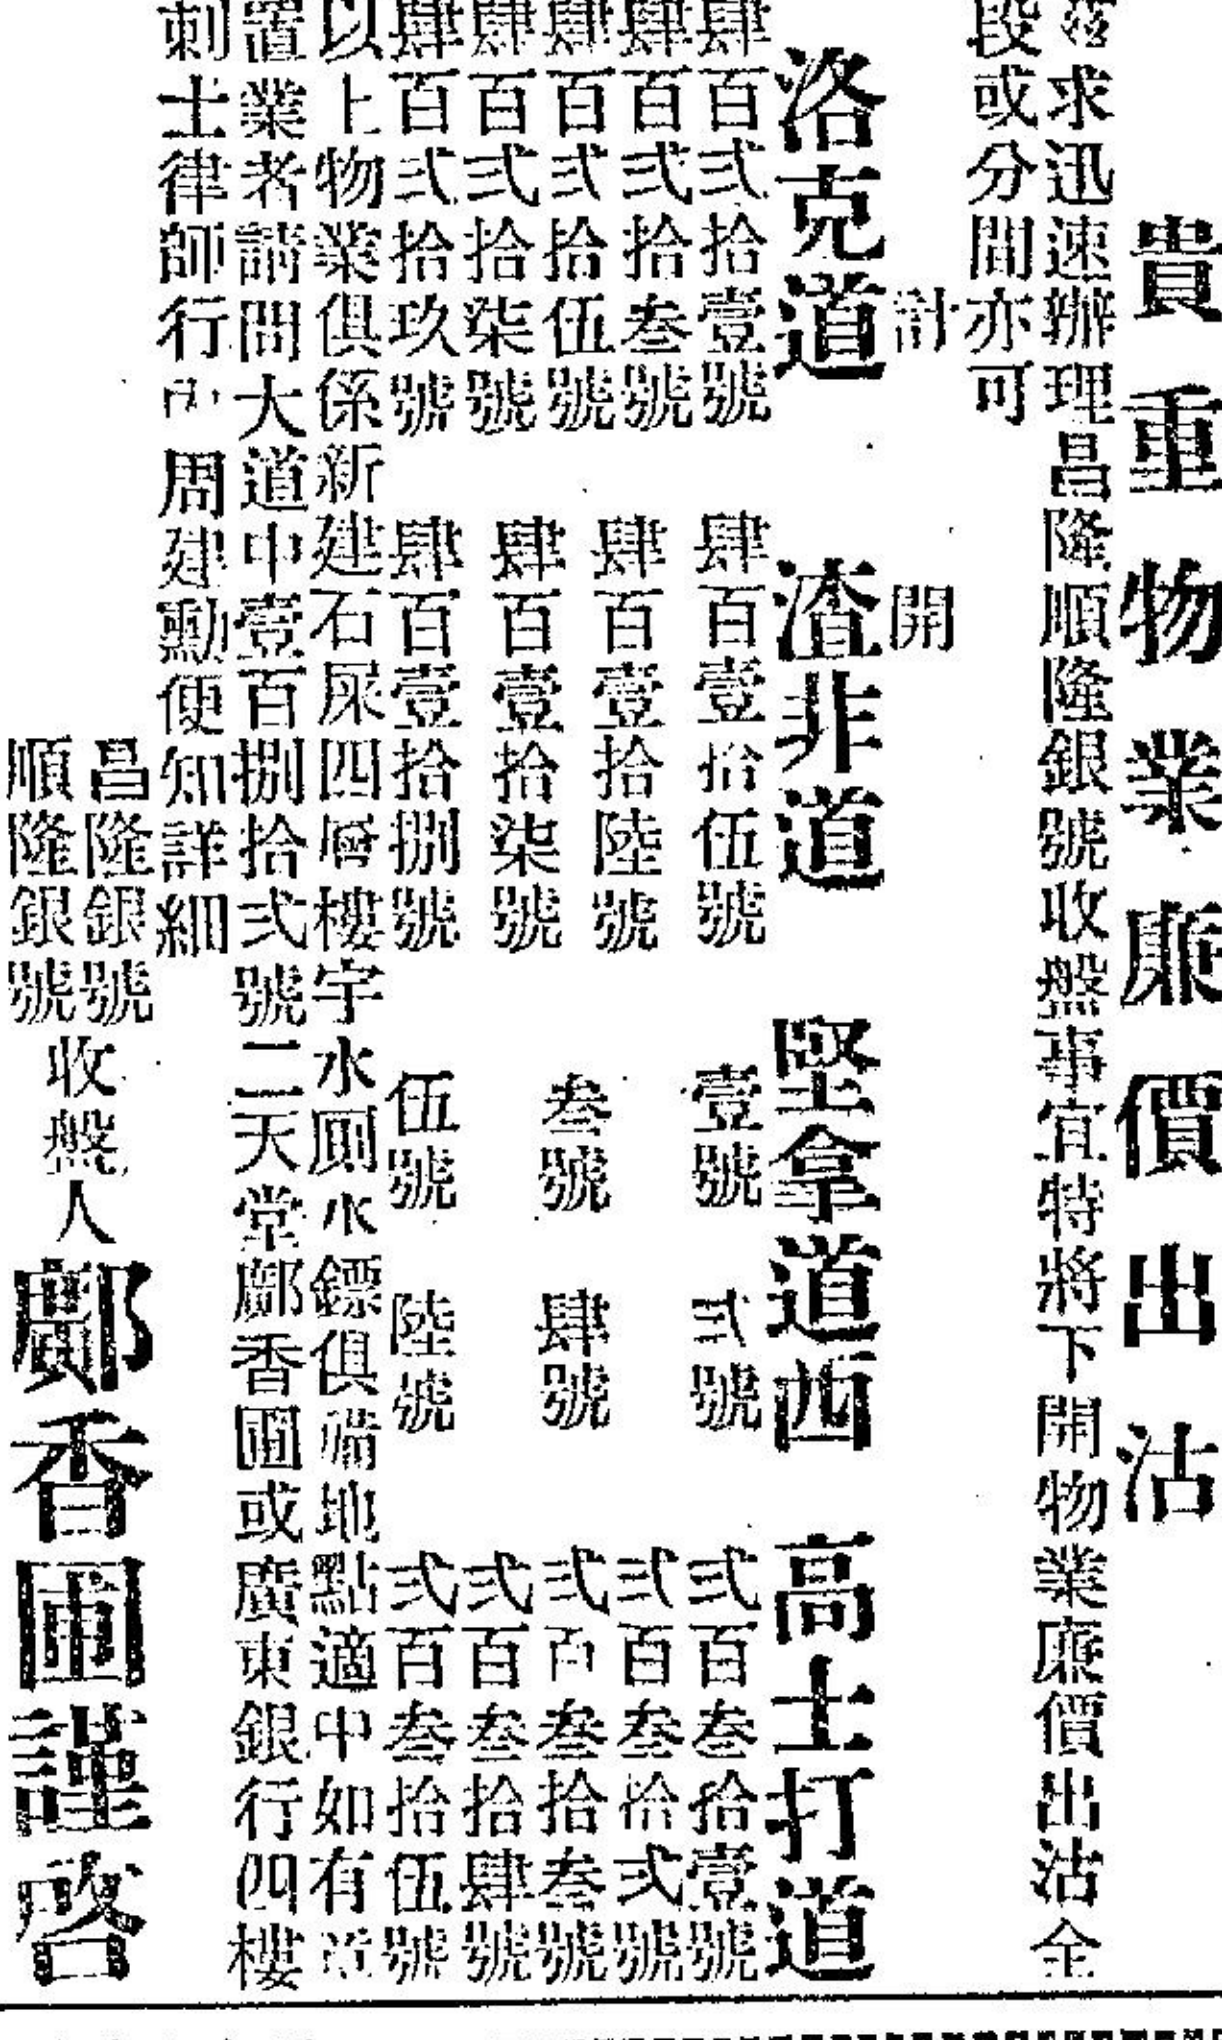 貴重物業廉價出沽
求迅速辦理昌隆順隆銀號收盤事宜特將下開物業廉價出沽全
段或分間亦可
計開
洛克道
肆百弍拾壹號
肆百弍拾叁號
肆百弍拾伍號
肆百弍拾柒號
肆百弍拾玖號
渣非道
肆百壹拾伍號
肆百壹拾陸號
肆百壹拾柒號
肆百壹拾捌號
堅拿道西
壹號 弍號
叁號 肆號
伍號 陸號
高士打道
弍百叁拾壹號
弍百叁拾弍號
弍百叁拾叁號
弍百叁拾肆號
弍百叁拾伍號
以上物業俱係新建石屎四層樓宇水厠水鏢俱備地點適中如有
置業者請問大道中壹百捌拾弍號二天堂鄺香圃或廣東銀行四樓
刺士律師行內周建勳便知詳細
昌隆銀號
順隆銀號
收盤人鄺香圃謹啓